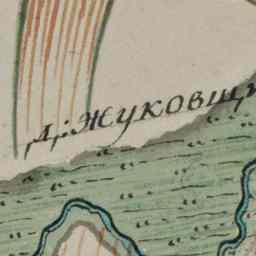 д: Жуковщи